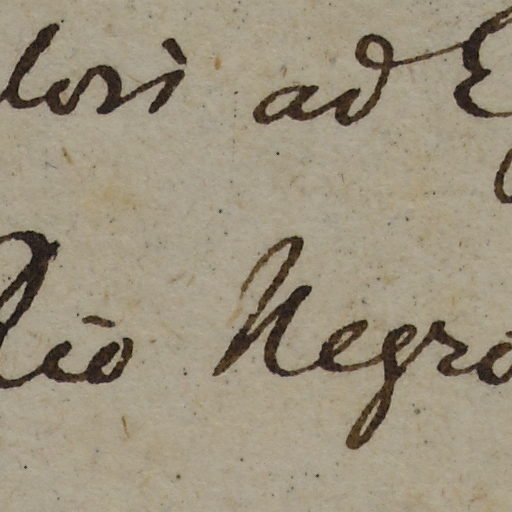 lori ad E
Rio Negro